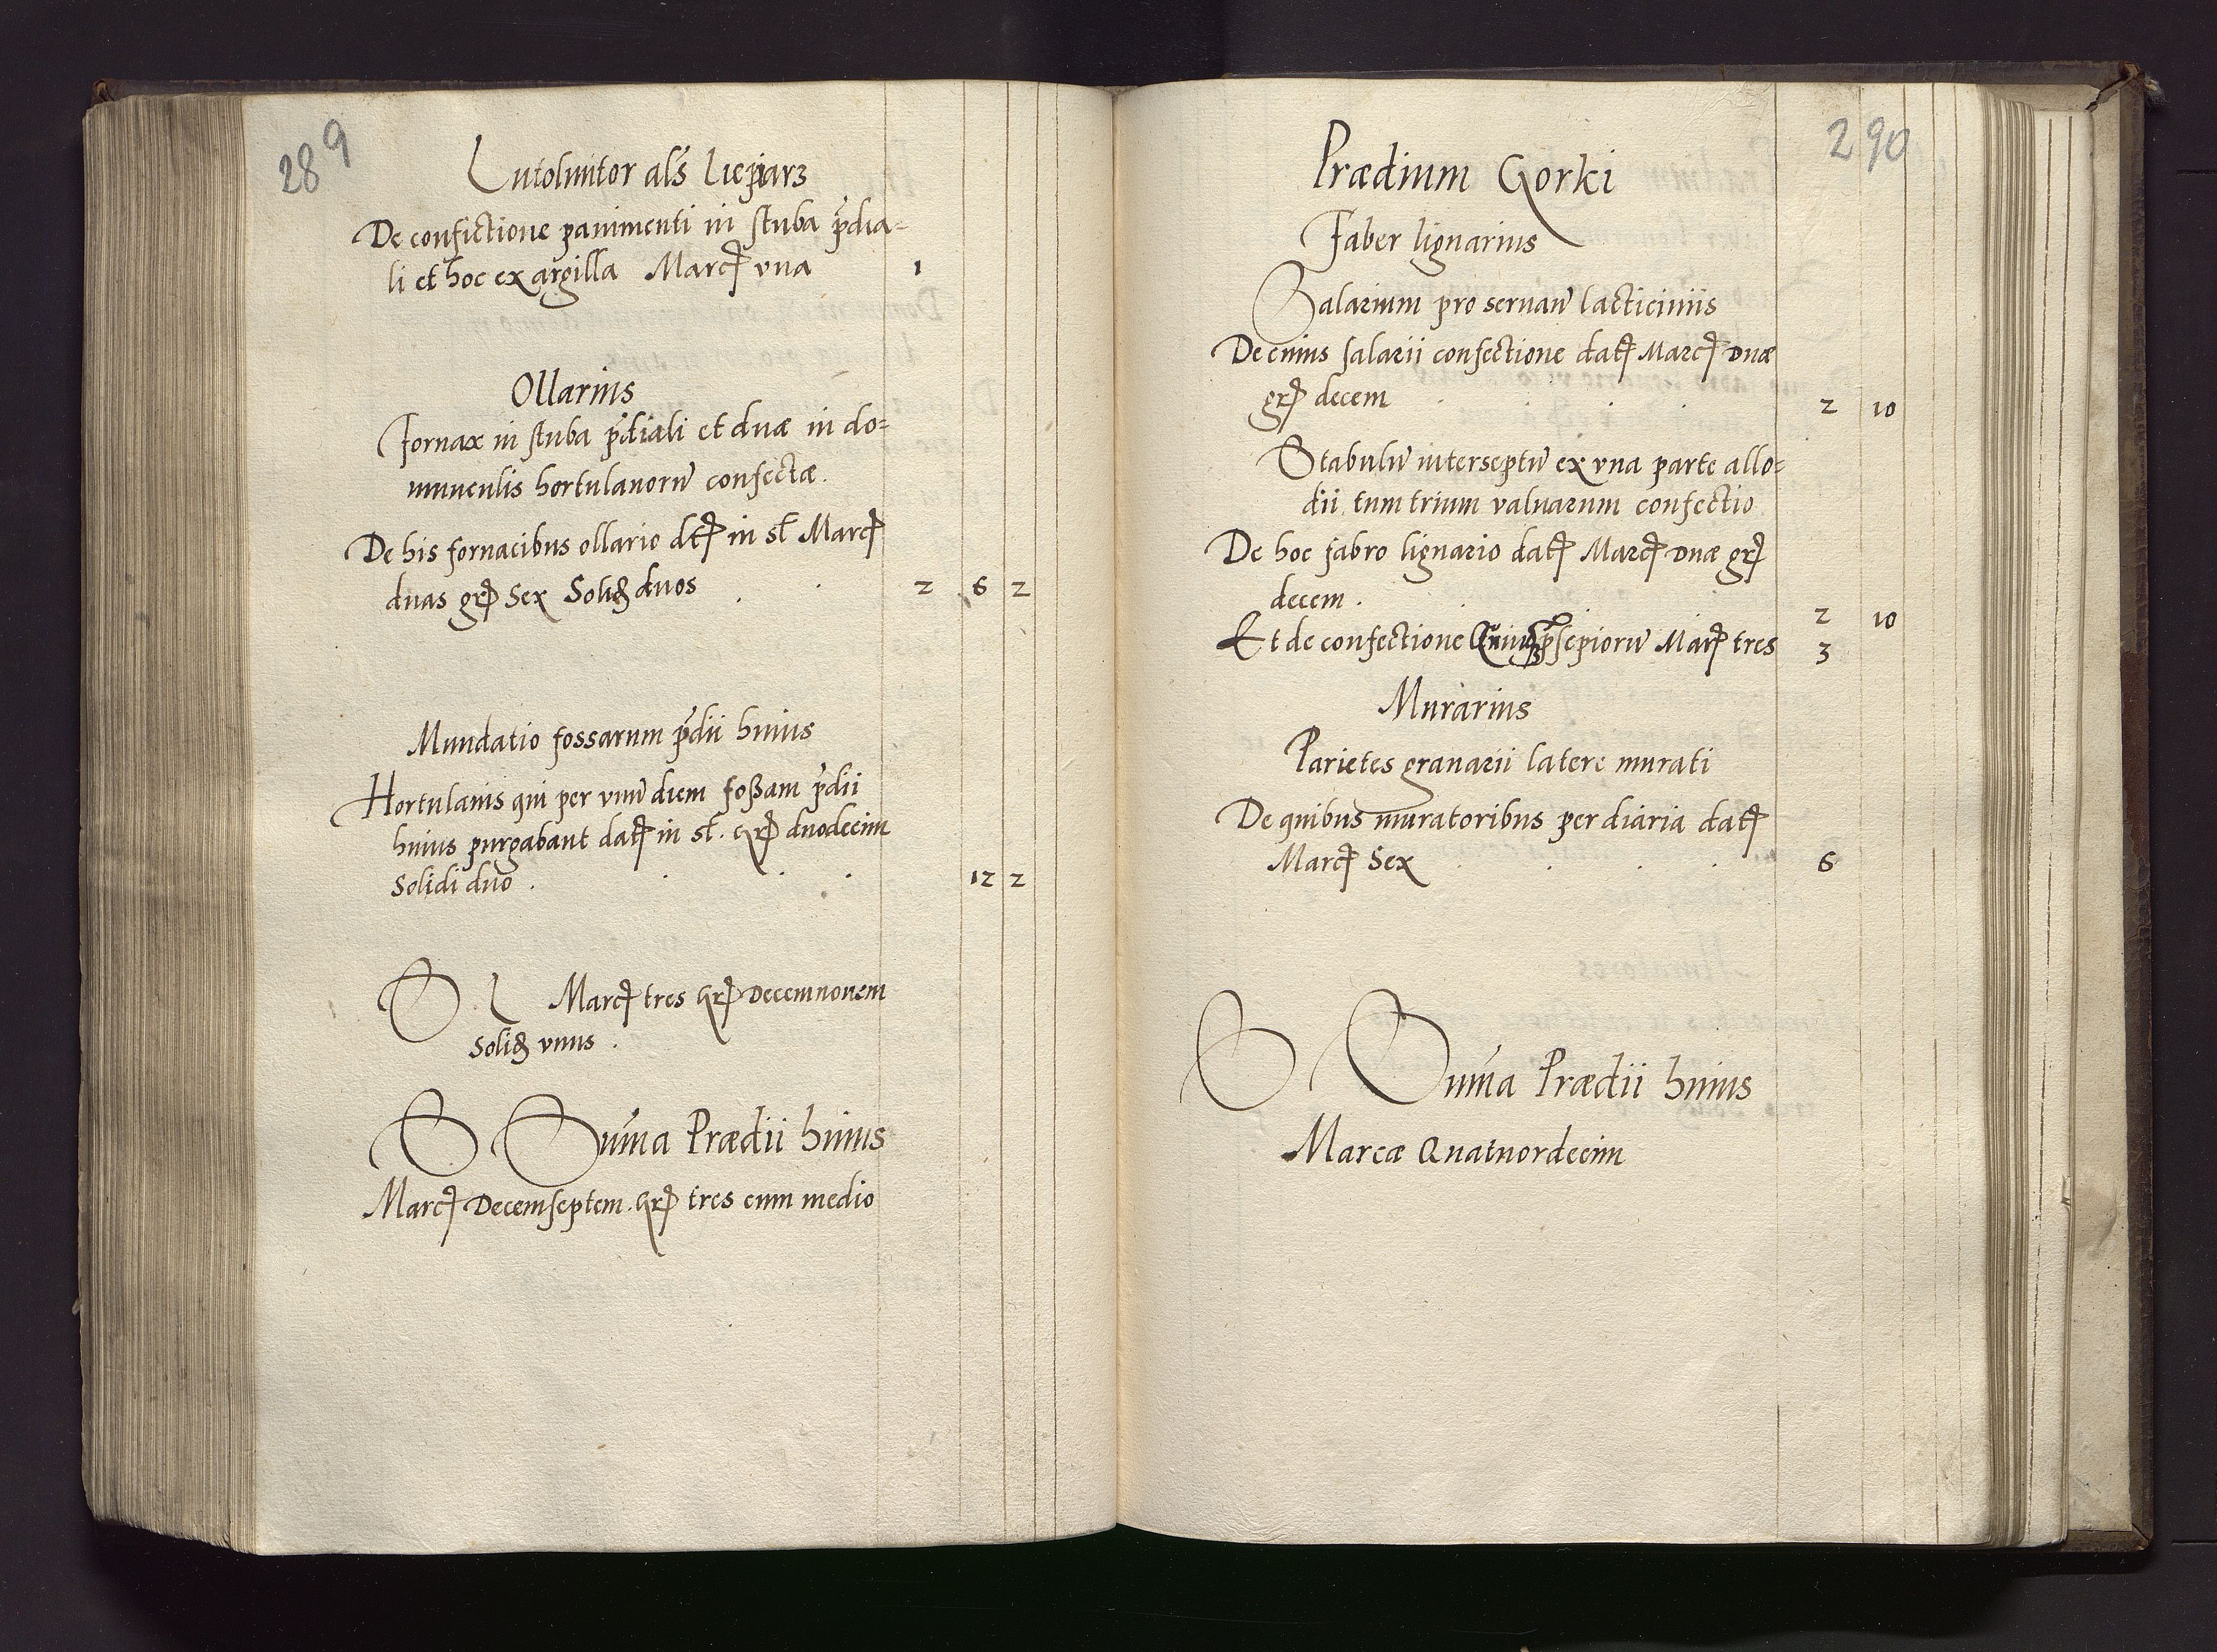 289
Lutolinitor als Liepiarz
De confictione pavimenti in stuba prdia-
li et hoc ex argilla Marc una 1
Ollarius
Fornax in stuba prdiali et duæ in do-
munculis hortulanorū confectæ.
De his fornacibus ollario dt in st Marc
duas gr Sex Solid duos . . 2 6 2
Mundatio fossarum prdii huius
Hortulanis qui per unū diem foßam prdii
huius purgabant dat in st. Gr duodecim
Solidi duo . . . . 12 2
S L Marc tres Gr Decemnovem
Solid unus .
S Sum̄a Prædii huius
Marc Decemseptem. Gr tres cum medio
290
Prædium Gorki
Faber lignarius
Salarium pro servan̄ lacticiniis
De cuius salarii confectione dat Marc duæ
gr decem . . . . 2 10
Stabulū interseptū ex una parte allo-
dii tum trium valvarum confectio
De hoc fabro lignario dat Marc duæ gr
decem . . 2 10
Et de confectione psepiorū Mar tres 3
Murarius
Parietes granarii latere murati
De quibus muratoribus per diaria dat
Marc Sex . . . . 6
S Sum̄a Prædii huius
Marcæ Quatuordecim